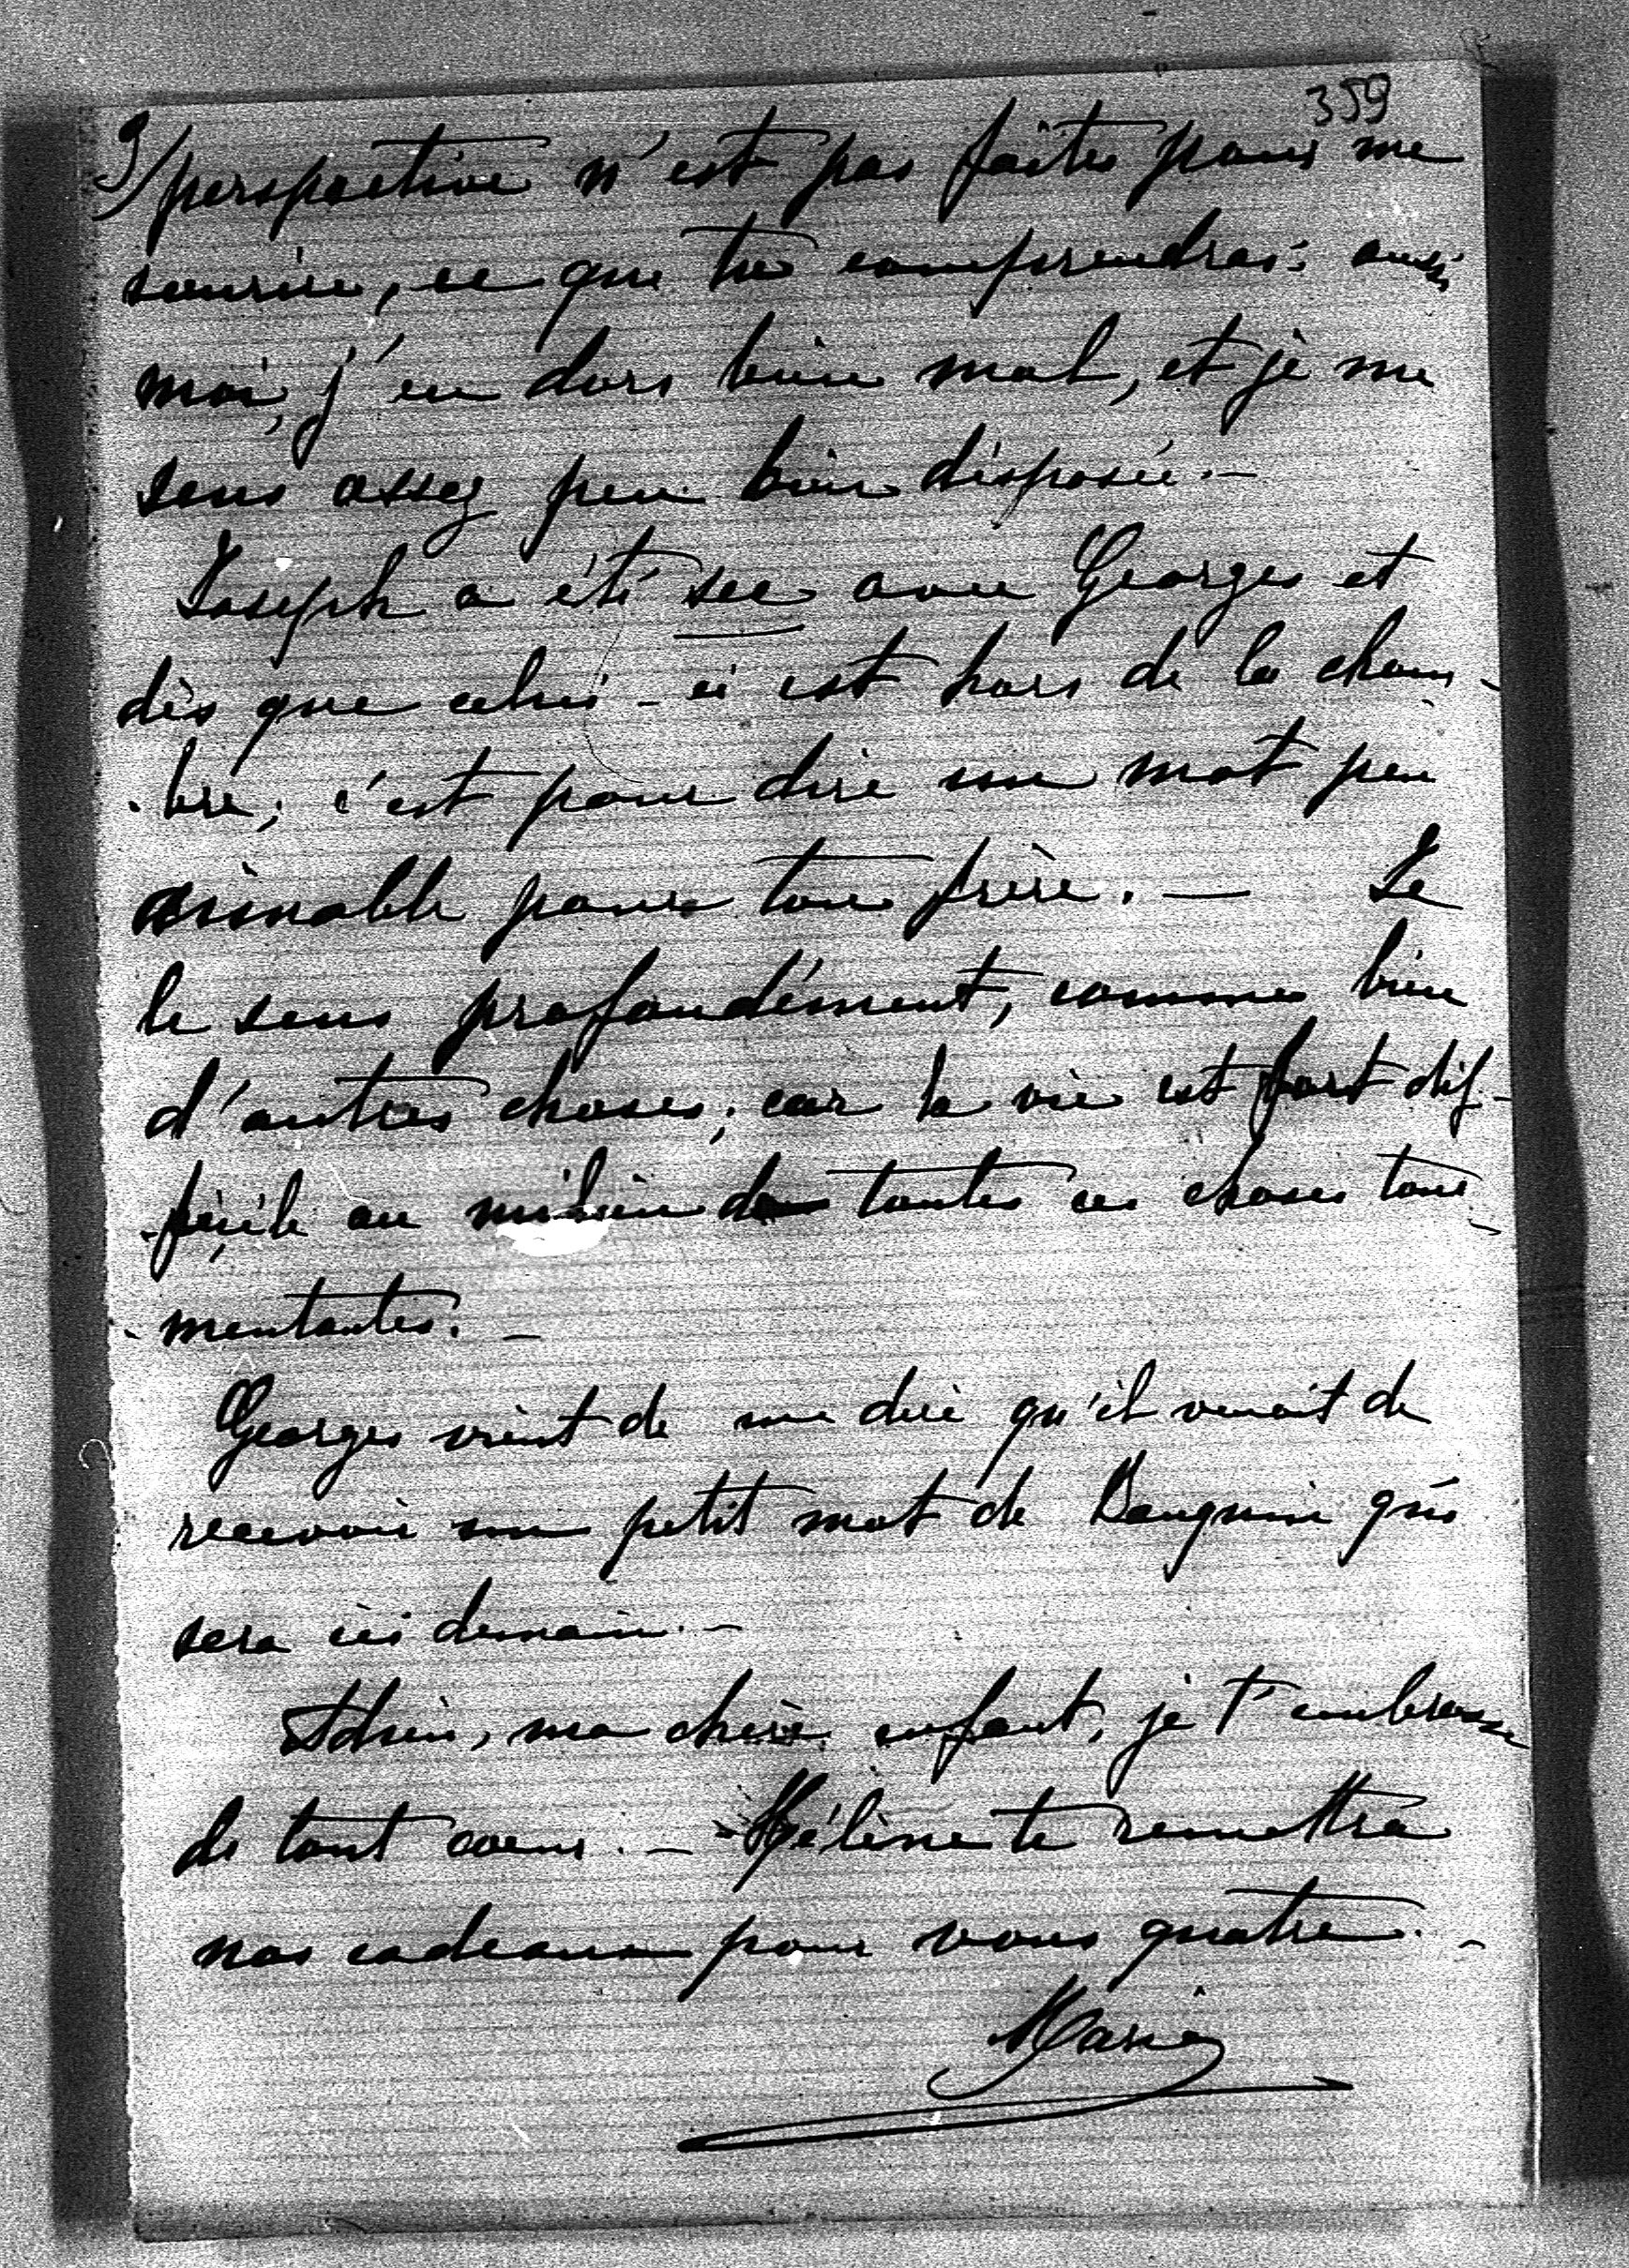 359
9/ perspective n'est pas faite pour me
sourire, ce que tu comprendras; aussi
moi, j'en dors bien mal, et je me
sens assez peu bien disposée. —
Joseph a été sec avec Georges et
dès que celui-ci est hors de la cham-
-bre, c'est pour dire un mot peu
aimable pour ton frère. — Je
le sens profondément, comme bien
d'autres choses; car la vie est fort dif-
-ficile au milieu de toutes ces choses tour-
-mentantes. —
Georges vient de me dire qu'il venait de
recevoir un petit mot de qui
sera ici demain. —
Adieu, ma chère enfant, je t'embrasse
de tout coeur. — Hélène te remettra
nos cadeaux pour vous quatre. —
Marie